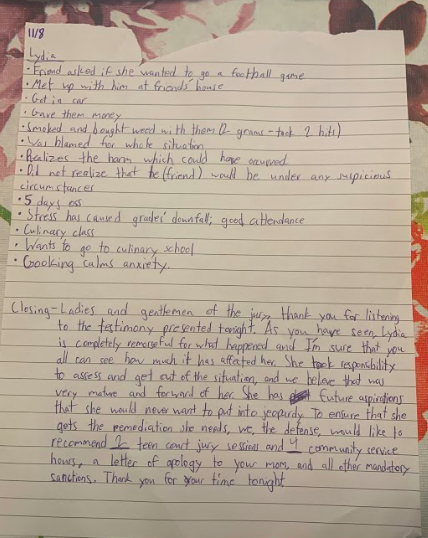 11/8
Lydia
• Friend asked if she wanted to go a football game
• Met up with him at friends' house
• Got in car
• Gave them money
• Smoked and bought weed with them (2 grams - took 2 hits)
• Was blamed for whole situation
• Realizes the harm which could have occurred
• Did not realize that he (friend) would be under any suspicious
circumstances
• 5 days oss
• Stress has caused grades' downfall; good attendance
• Culinary class
• Wants to go to culinary school
• Cooking calms anxiety.
Closing - Ladies and gentlemen of the jury, thank you for listening
to the testimony presented tonight. As you have seen, Lydia
is completely remorseful for what happened and I'm sure that you
all can see how much it has affected her. She took responsibility
to assess and get out of the situation, and we believe that was
very mature and forward of her. She has future aspirations
that she would never want to put into jeopardy. To ensure that she
gets the remediation she needs, we, the defense, would like to
recommend 2 teen court jury sessions and 4 community service
hours, a letter of apology to your mom, and all other mandatory
sanctions. Thank you for your time tonight